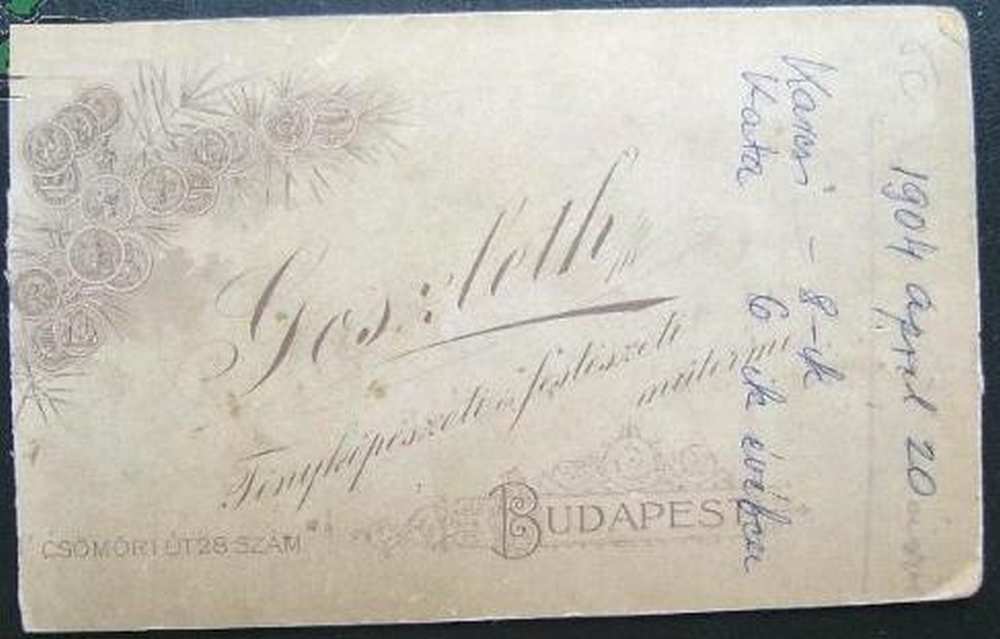 Goszleth
Fényképészeti és festészeti
műtermei
BUDAPEST
CSÖMÖRI ÚT 28 SZÁM
1904 április 20
Karcsi - 8-ik
Kata 6 ik évében